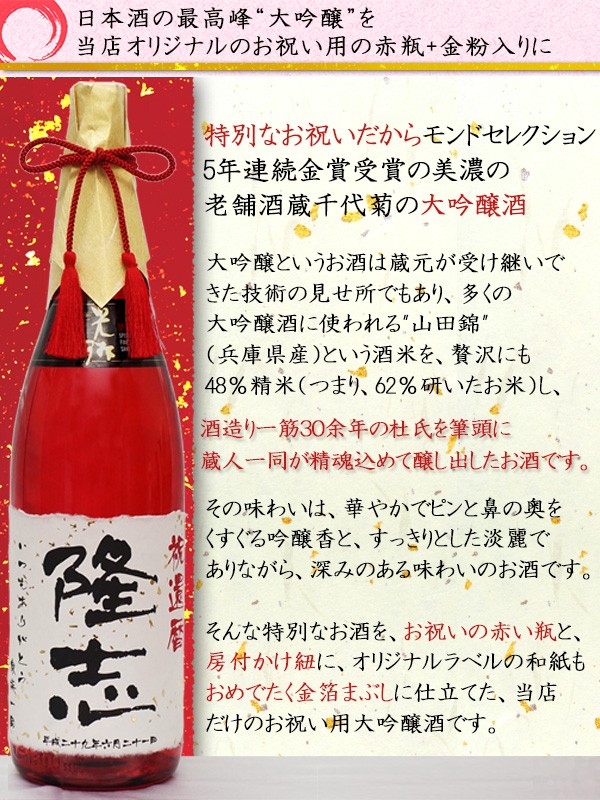 日本酒の最高峰“大吟醸”を
当店オリジナルのお祝い用の赤瓶+金粉入りに
特別なお祝いだからモンドセレクション
5年連続金賞受賞の美濃の
老舗酒蔵千代菊の大吟醸酒
大吟醸というお酒は蔵元が受け継いで
きた技術の見せ所でもあり、多くの
大吟醸酒に使われる"山田錦"
（兵庫県産）という酒米を、贅沢にも
48%精米（つまり、62%研いたお米）し、
酒造り一筋30余年の杜氏を筆頭に
蔵人一同が精魂込めて醸し出したお酒です。
その味わいは、華やかでピンと鼻の奥を
くすぐる吟醸香と、すっきりとした淡麗で
ありながら、深みのある味わいのお酒です。
そんな特別なお酒を、お祝いの赤い瓶と、
房付かけ紐に、オリジナルラベルの和紙も
おめでたく金箔まぶしに仕立てた、当店
だけのお祝い用大吟醸酒です。
祝還暦
隆志
いつもありがとう
平成二十九年六月二十一日